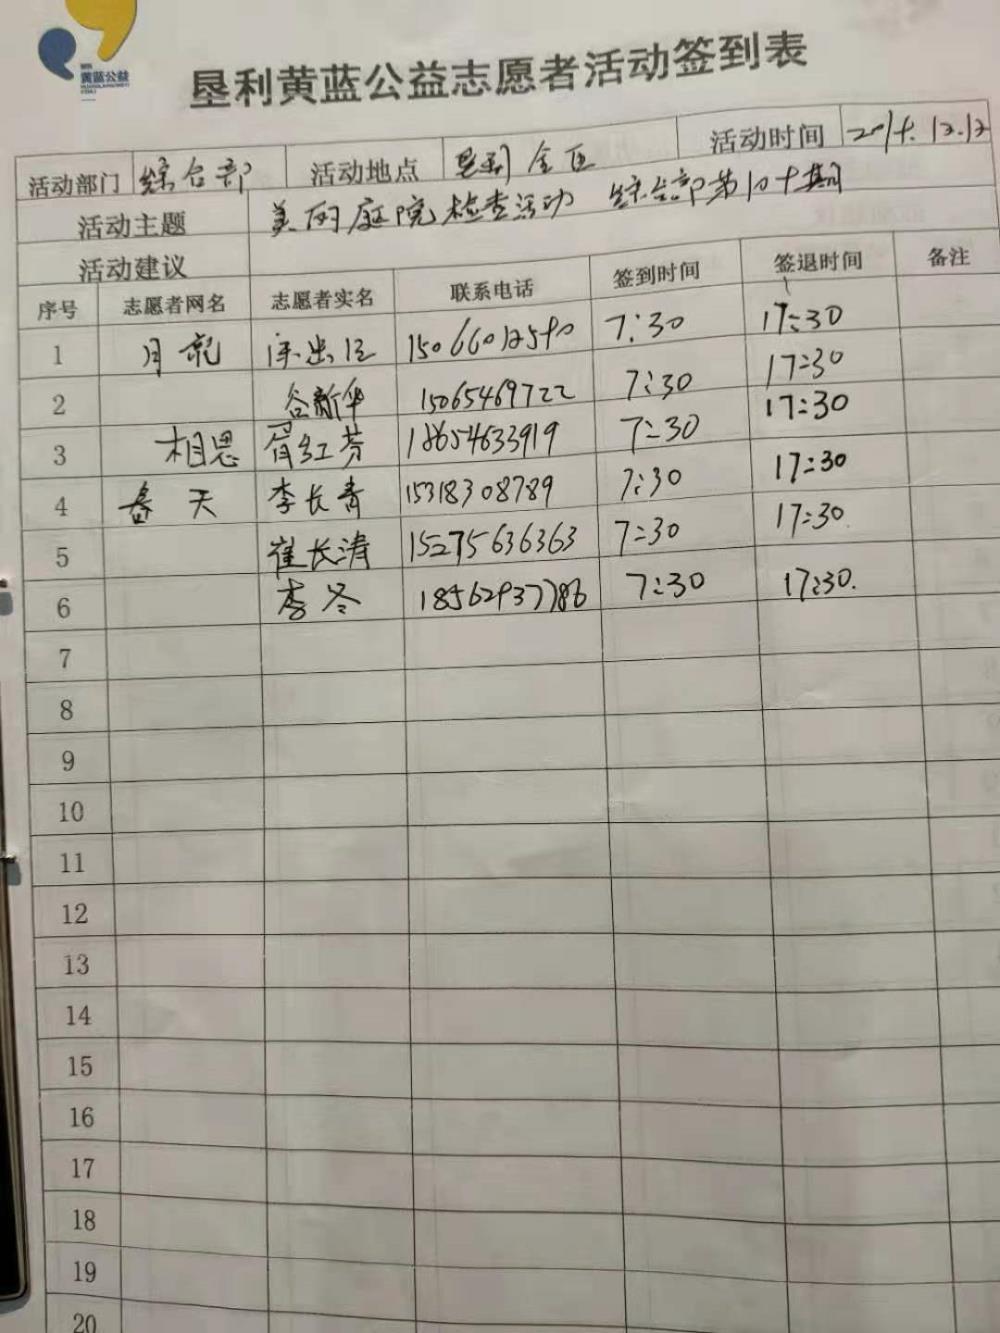 黄蓝公益
垦利黄蓝公益志愿者活动签到表
活动部门 综合部 活动地点 垦利全区 活动时间 12.12
活动主题 美丽庭院检查活动 综合部第 期
活动建议
序号 志愿者网名 志愿者实名 联系电话 签到时间 签退时间 备注
1 7:30 17:30
2 谷新华 15065469722 7:30 17:30
3 相思 胥红芬 18654633919 7:30 17:30
4 春天 李长青 15318308789 7:30 17:30
5 崔长涛 15275636363 7:30 17:30
6 李冬 18562937786 7:30 17:30.
7
8
9
10
11
12
13
14
15
16
17
18
19
20